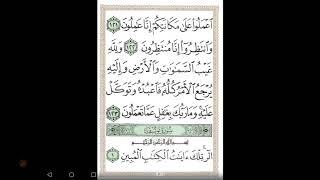 ٱعۡمَلُوا۟ عَلَىٰ مَكَانَتِكُمۡ إِنَّا عَـٰمِلُونَ ١٢١
وَٱنتَظِرُوٓا۟ إِنَّا مُنتَظِرُونَ ١٢٢ وَلِلَّهِ
غَيۡبُ ٱلسَّمَـٰوَٰتِ وَٱلۡأَرۡضِ وَإِلَيۡهِ
يُرۡجَعُ ٱلۡأَمۡرُ كُلُّهُۥ فَٱعۡبُدۡهُ وَتَوَكَّلۡ
عَلَيۡهِۚ وَمَا رَبُّكَ بِغَـٰفِلٍ عَمَّا تَعۡمَلُونَ ١٢٣
سُورَةُ يُوسُفَ
بِسۡمِ ٱللَّهِ ٱلرَّحۡمَـٰنِ ٱلرَّحِيمِ
الٓرۚ تِلۡكَ ءَايَـٰتُ ٱلۡكِتَـٰبِ ٱلۡمُبِينِ ١